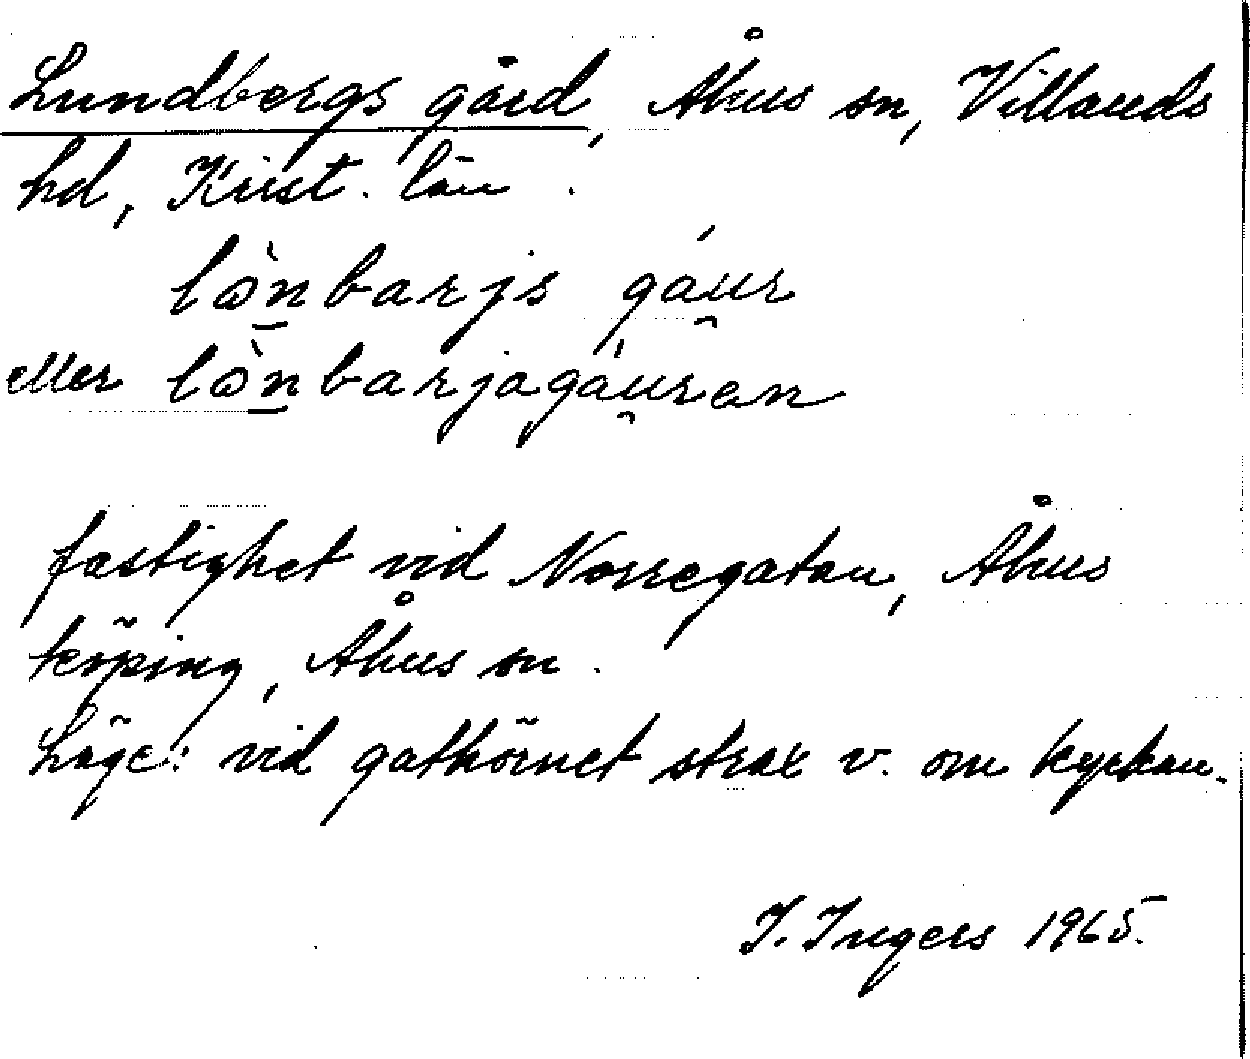 Lundbergs gård, Åhus sn, Villands
hd, Krist. län.
lò̀n̲barjs gáu̯r
eller lò̀n̲barjagáu̯ren
fastighet vid Norregatan, Åhus
köping, Åhus sn.
Läge: vid gathörnet strax v. om kyrkan.
I. Ingers 1965.